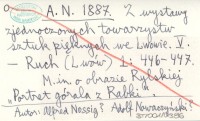 A.N. 1887. Z wystawy
zjednoczonych towarzystw
sztuk pięknych we Lwowie. V.
- Ruch (Lwów) L: 446-447.
M.in o obrazie Rylskiej
"Portret górala z Rabki".
Autor: Alfred Nossig? Adolf Nowaczyński?